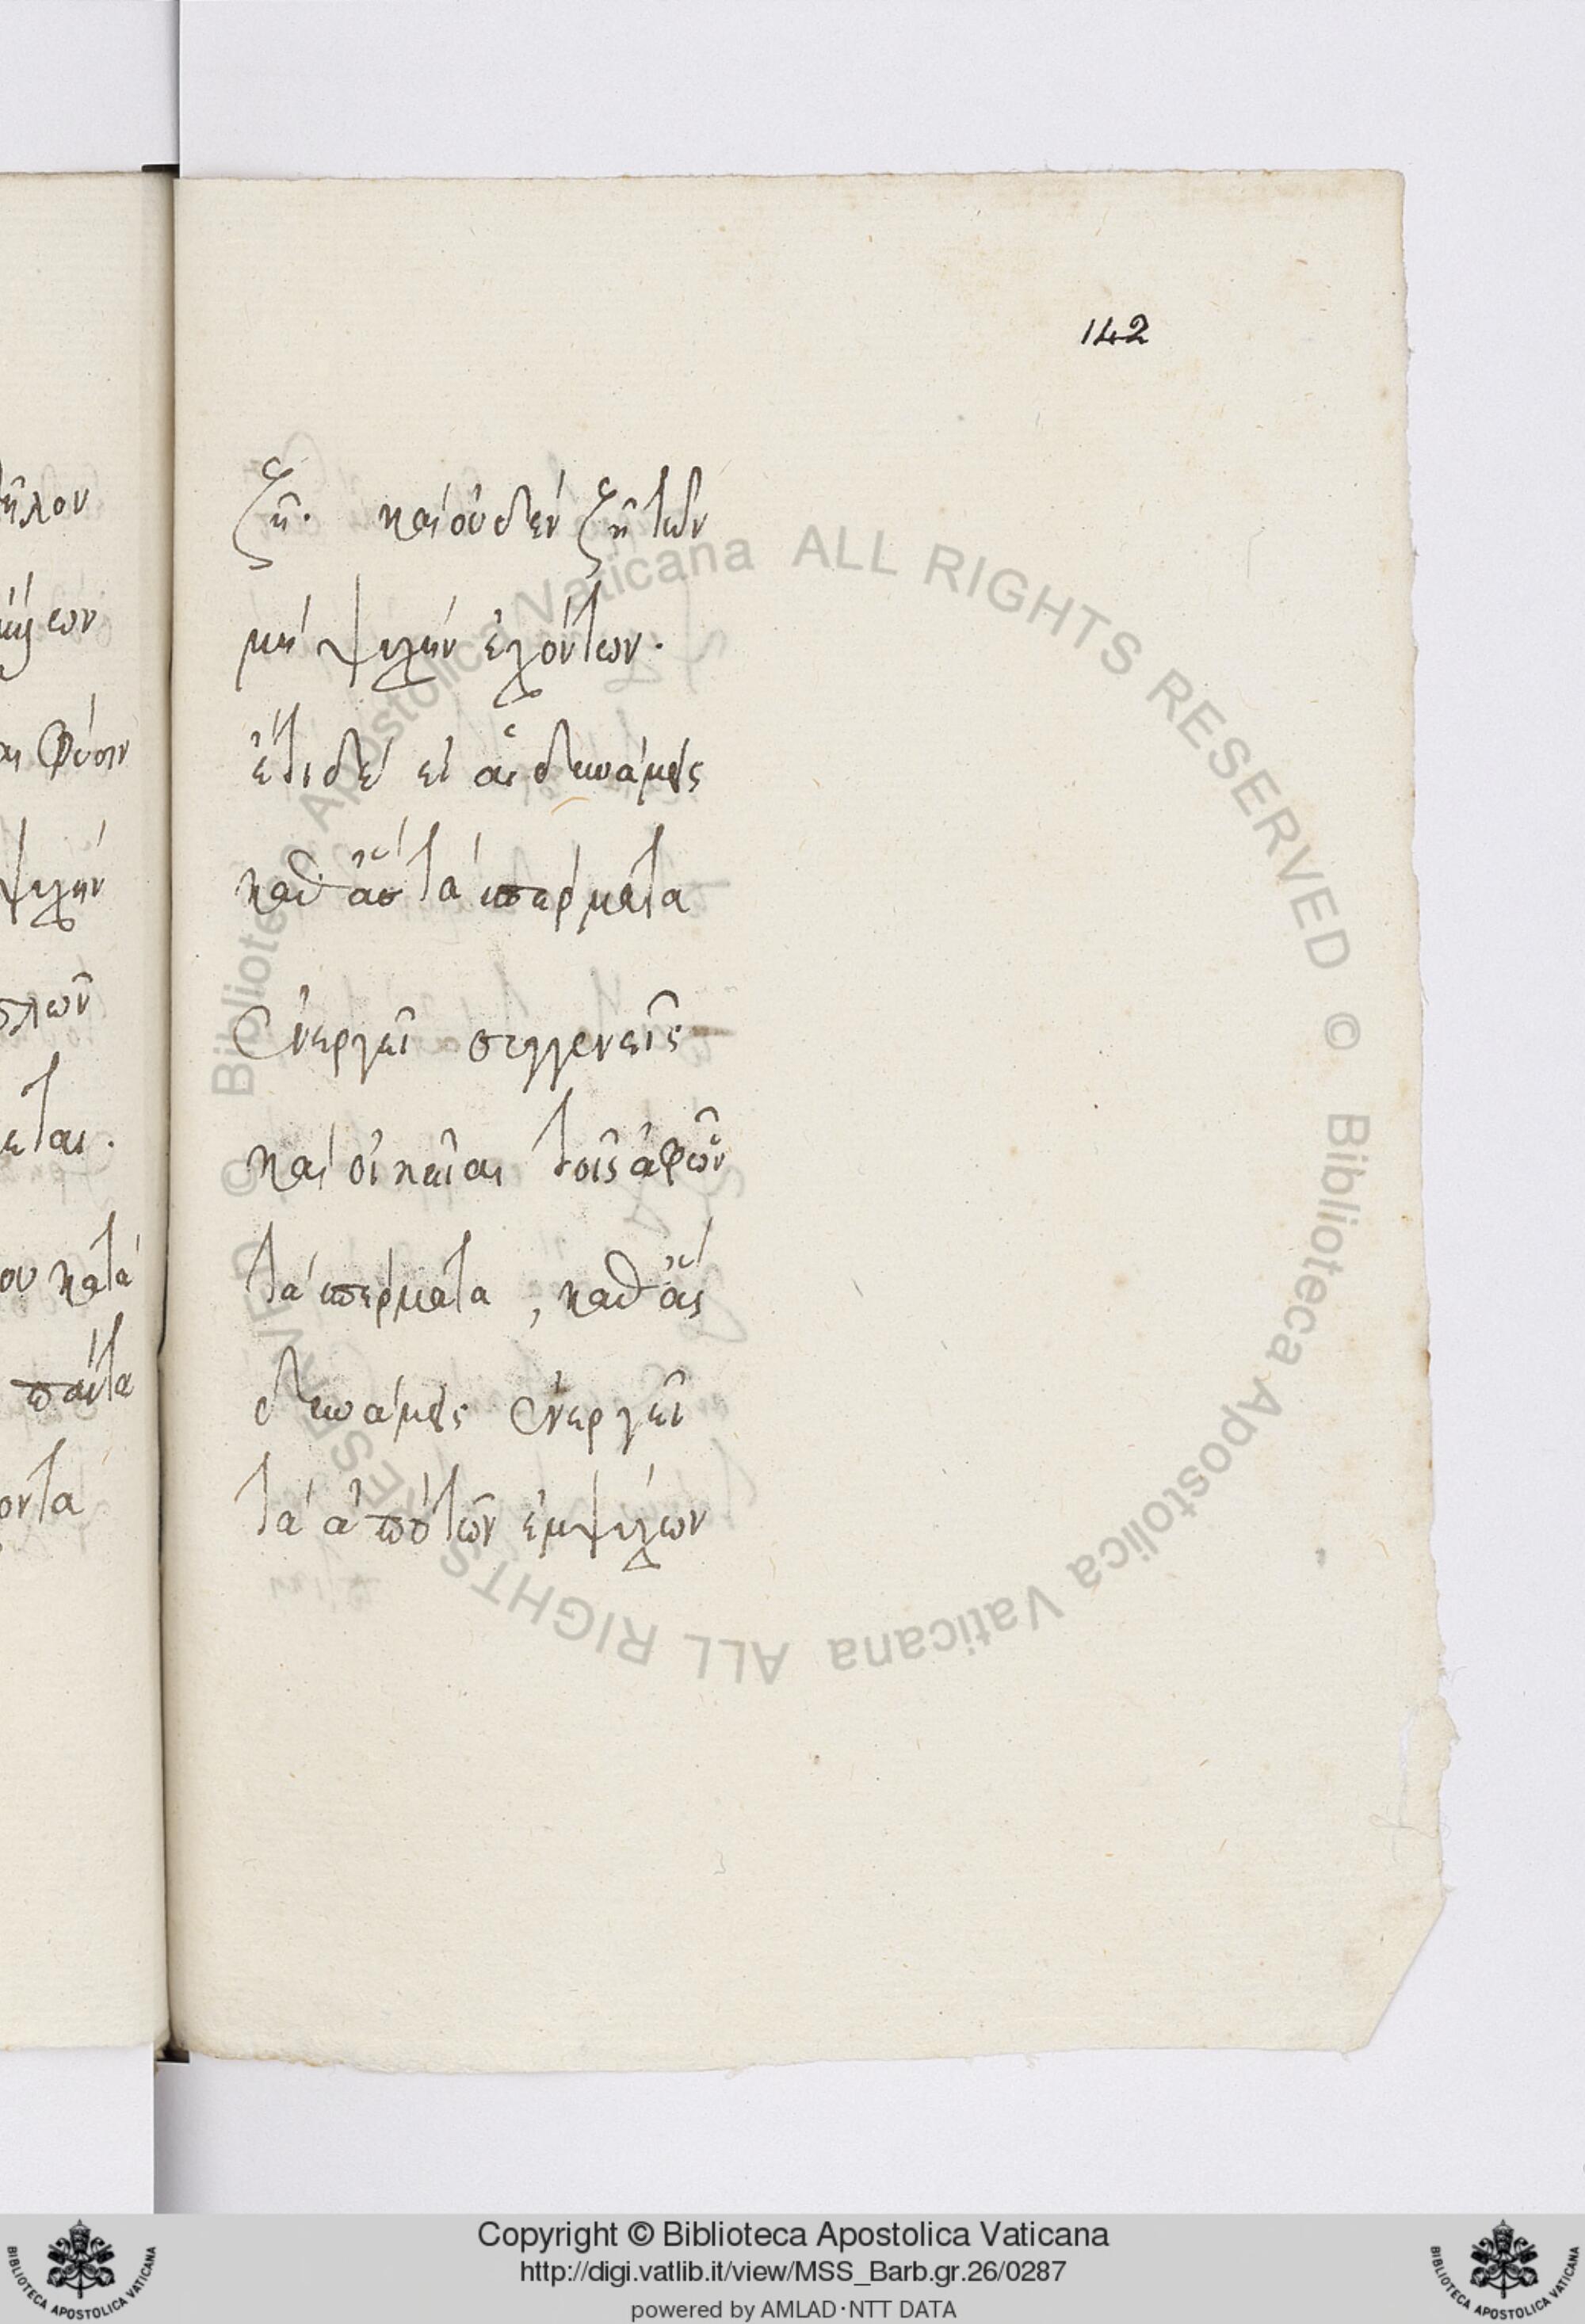 142
ζῆ. καὶ οὐδὲν ζῆ τῶν
μὴ ψυχὴν ἐχόντων.
ἔτι δὲ εἰ αἱ δυνάμεις
καθ' ἃς τὰ σπέρματα
ἐνεργεῖ συγγενεῖς
καὶ οἰκεῖαι τοῖς ἀφ' ὧν
τὰ σπέρματα, καθ' ἃς
δυνάμεις ἐνεργεῖ
τὰ ἀπὸ τῶν ἐμψύχων
ψυχὴν
εται.
κατὰ
πάντα
Copyright © Biblioteca Apostolica Vaticana
http://digi.vatlib.it/view/MSS_Barb.gr.26/0287
powered by AMLAD·NTT DATA
BIBLIOTECA APOSTOLICA VATICANA
BIBLIOTECA APOSTOLICA VATICANA
© Biblioteca Apostolica Vaticana ALL RIGHTS RESERVED © Biblioteca Apostolica Vaticana ALL RIGHTS RESERVED